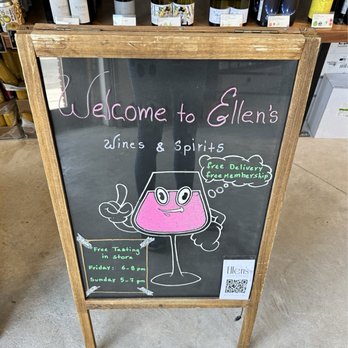 Welcome to Ellen's
Wines & Spirits
free Delivery
free Membership
Free Tasting
in store
Friday: 6-8 pm
Sunday 5-7 pm
Ellen's